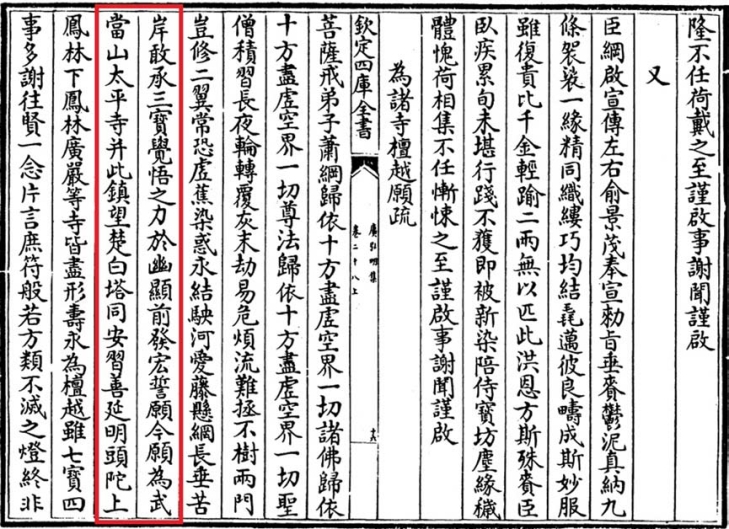 隆不任荷戴之至謹啟事謝聞謹啟
又
臣綱啟宣傳左右俞景茂奉宣勅旨垂賚鬱泥真納九
條袈裟一緣精同織縷巧均結毳邁彼良疇成斯妙服
雖復貴比千金輕踰二兩無以匹此洪恩方斯殊賚臣
臥疾累旬未堪行踐不獲即被新染陪侍寶坊塵緣穢
體愧荷相集不任慚悚之至謹啟事謝聞謹啟
為諸寺檀越願疏
欽定四庫全書
廣弘明集
卷二十八上
十六
菩薩戒弟子蕭綱歸依十方盡虛空界一切諸佛歸依
十方盡虛空界一切尊法歸依十方盡虛空界一切聖
僧積習長夜輪轉覆灰末劫易危煩流難拯不樹兩門
豈修二翼常恐虛蕉染惑永結駛河愛藤懸網長垂苦
岸敢承三寶覺悟之力於幽顯前發宏誓願今願為武
當山太平寺并此鎮望楚白塔同安習善延明頭陀上
鳳林下鳳林廣嚴等寺皆盡形壽永為檀越雖七寶四
事多謝往賢一念片言庶符般若方類不滅之燈終非